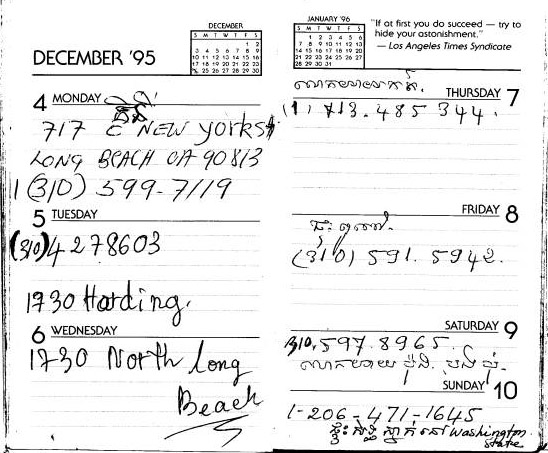 DECEMBER '95
DECEMBER
S M T W T F S
1 2
3 4 5 6 7 8 9
10 11 12 13 14 15 16
17 18 19 20 21 22 23
25 26 27 28 29 30
4 MONDAY
717 E NEW york st
LONG BEACH CA 90813
1 (310) 599-7119
5 TUESDAY
(310) 4278603
1730 Harding.
6 WEDNESDAY
1730 North Long
Beach
JANUARY '96
S M T W T F S
1 2 3 4 5 6
7 8 9 10 11 12 13
14 15 16 17 18 19 20
21 22 23 24 25 26 27
28 29 30 31
"If at first you do succeed — try to
hide your astonishment."
— Los Angeles Times Syndicate
THURSDAY 7
713.485 344.
FRIDAY 8
(310) 591.5942.
SATURDAY 9
310.597.8965
SUNDAY 10
1-206-471-1645
ផ្ទះ នៅ Washington
state